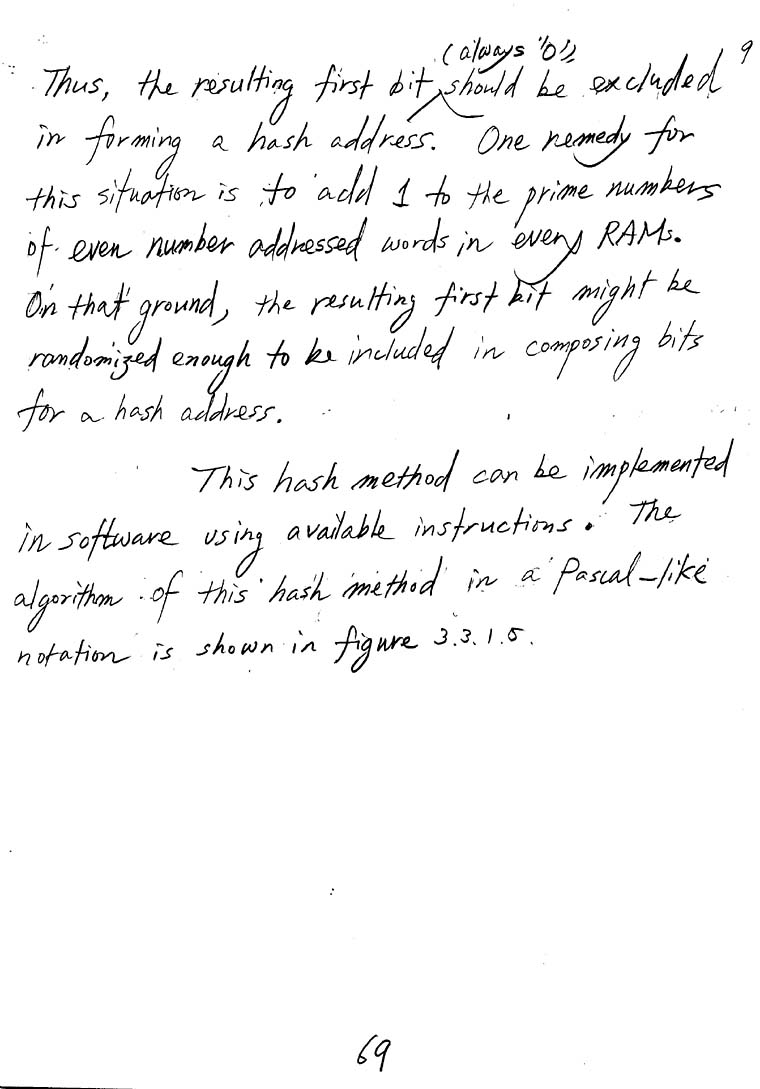 (always '0') 9
Thus, the resulting first bit should be excluded
in forming a hash address. One remedy for
this situation is to add 1 to the prime numbers
of even number addressed words in every RAMs.
On that ground, the resulting first bit might be
randomized enough to be included in composing bits
for a hash address.
This hash method can be implemented
in software using available instructions. The
algorithm of this hash method in a Pascal-like
notation is shown in figure 3.3.1.5.
69